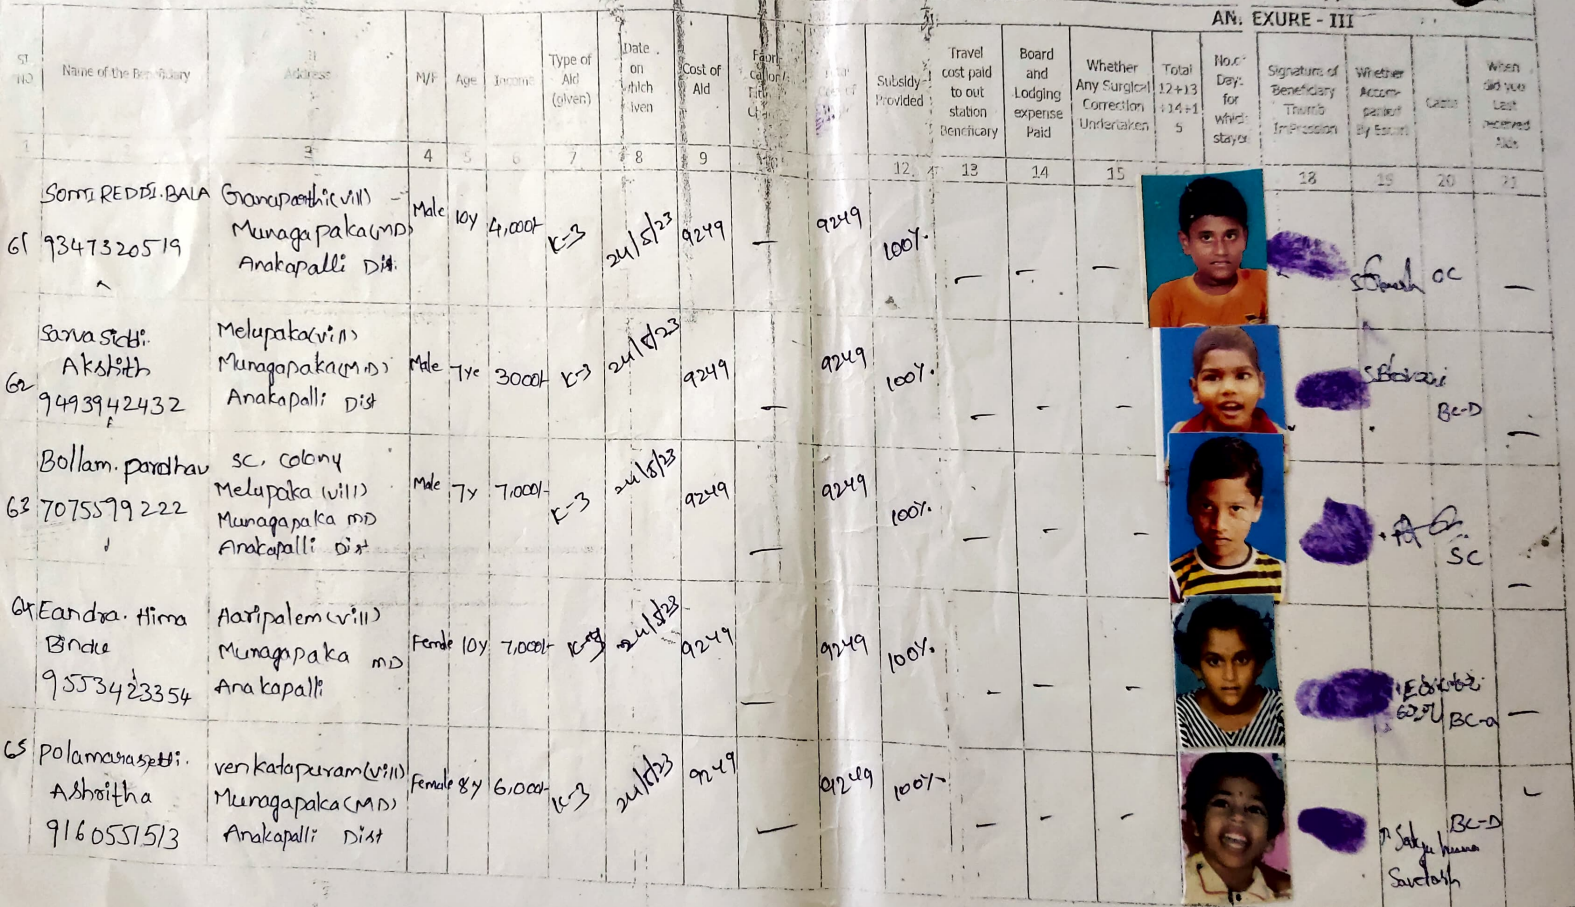 ANNEXURE - III
Sl. NO
Name of the Beneficiary
Address
M/F
Age
Income
Type of Aid (given)
Date on which given
Cost of Aid
Subsidy Provided
Travel cost paid to out station Beneficary
Board and Lodging expense Paid
Whether Any Surgical Correction Undertaken
Total 12+13 +14+1 5
No.of Days for which stayed
Signature of Beneficiary Thumb Impression
Whether Accom- panied By Escort
Caste
When did you Last received Aids
3 4 5 6 7 8 9 12 13 14 15 18 19 20 21
61 SOMIREDDI. BALA 9347320519
Ganaparthi (vill) Munagapaka (MD) Anakapalli Dist.
Male 10y 4,000/- K-3 24/5/23 9249 — 9249 100% — — — OC —
62 Sarvasiddi. Akshith 9493942432
Melupaka (vill) Munagapaka (M.D) Anakapalli Dist
Male 7ye 3000/- K-3 24/5/23 9249 — 9249 100%. — — — BC-D —
63 Bollam. pardhav 7075599222
SC. colony Melupaka (vill) Munagapaka MD Anakapalli Dist
Male 7y 7,000/- K-3 24/5/23 9249 — 9249 100%. — — — SC —
64 Eandra. Hima Bindu 9553423354
Aaripalem (vill) Munagapaka MD Anakapalli
Female 10y 7,000/- K-3 24/5/23 9249 — 9249 100%. — — — BC-a —
65 polamarasetti. Ashritha 9160551513
venkatapuram (vill) Munagapaka (MD) Anakapalli Dist
Female 8y 6,000/- K-3 24/5/23 9249 — 9249 100% — — — BC-D